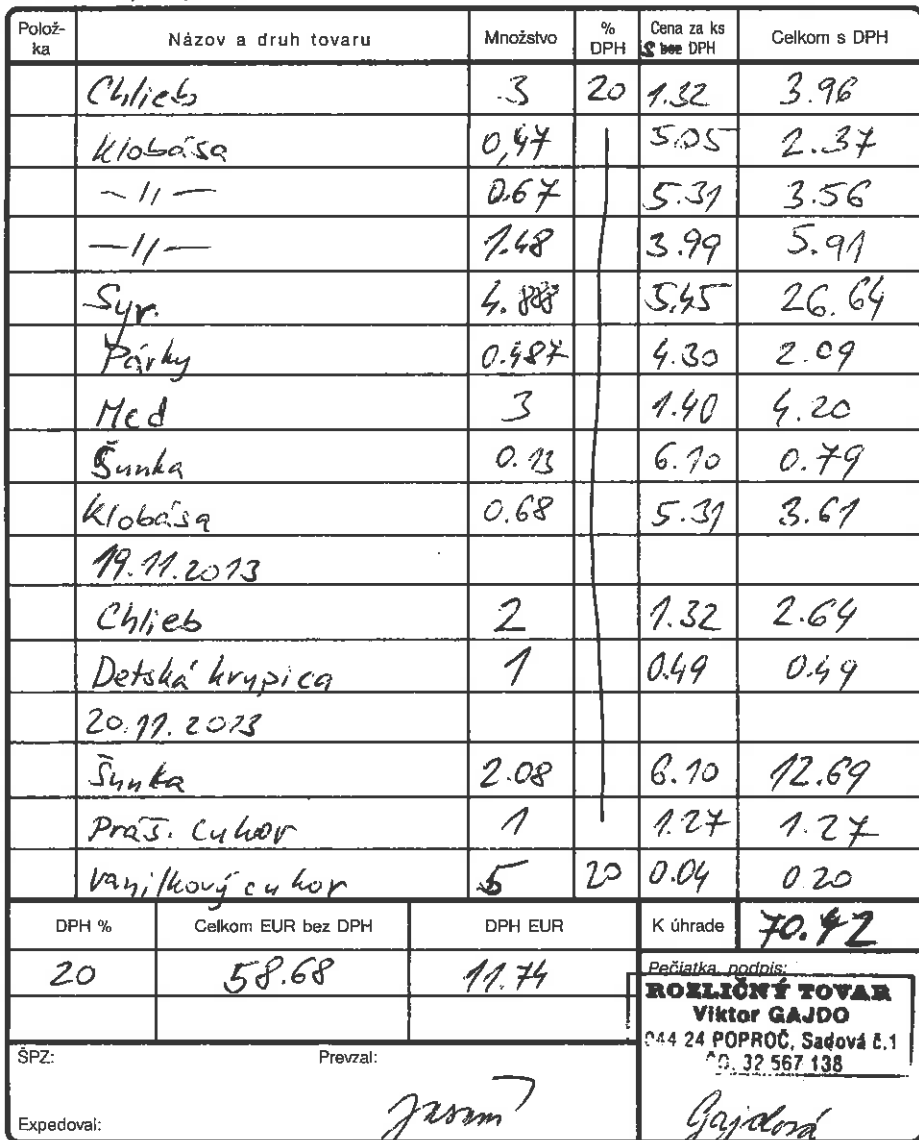 Polož-ka Názov a druh tovaru Množstvo % DPH Cena za ks s bez DPH Celkom s DPH
Chlieb 3 20 1.32 3.96
Klobása 0,47 5,05 2.37
-//- 0.67 5.31 3.56
-//- 1.48 3.99 5.91
Syr. 5,45 26.64
Párky 0.487 4.30 2.09
Med 3 1.40 4.20
Šunka 0.13 6.10 0.79
Klobása 0.68 5.31 3.61
19.11.2013
Chlieb 2 1.32 2.64
Detská krupica 1 0.49 0.49
20.11.2013
Šunka 2.08 6.10 12.69
Práš. Cukor 1 1.27 1.27
Vanilkový cukor 5 20 0.04 0.20
DPH % Celkom EUR bez DPH DPH EUR K úhrade 70.42
20 58.68 11.74
Pečiatka, podpis:
ROZLIČNÝ TOVAR
Viktor GAJDO
044 24 POPROČ, Sadová č.1
32 567 138
ŠPZ: Prevzal:
Expedoval: Gajdová